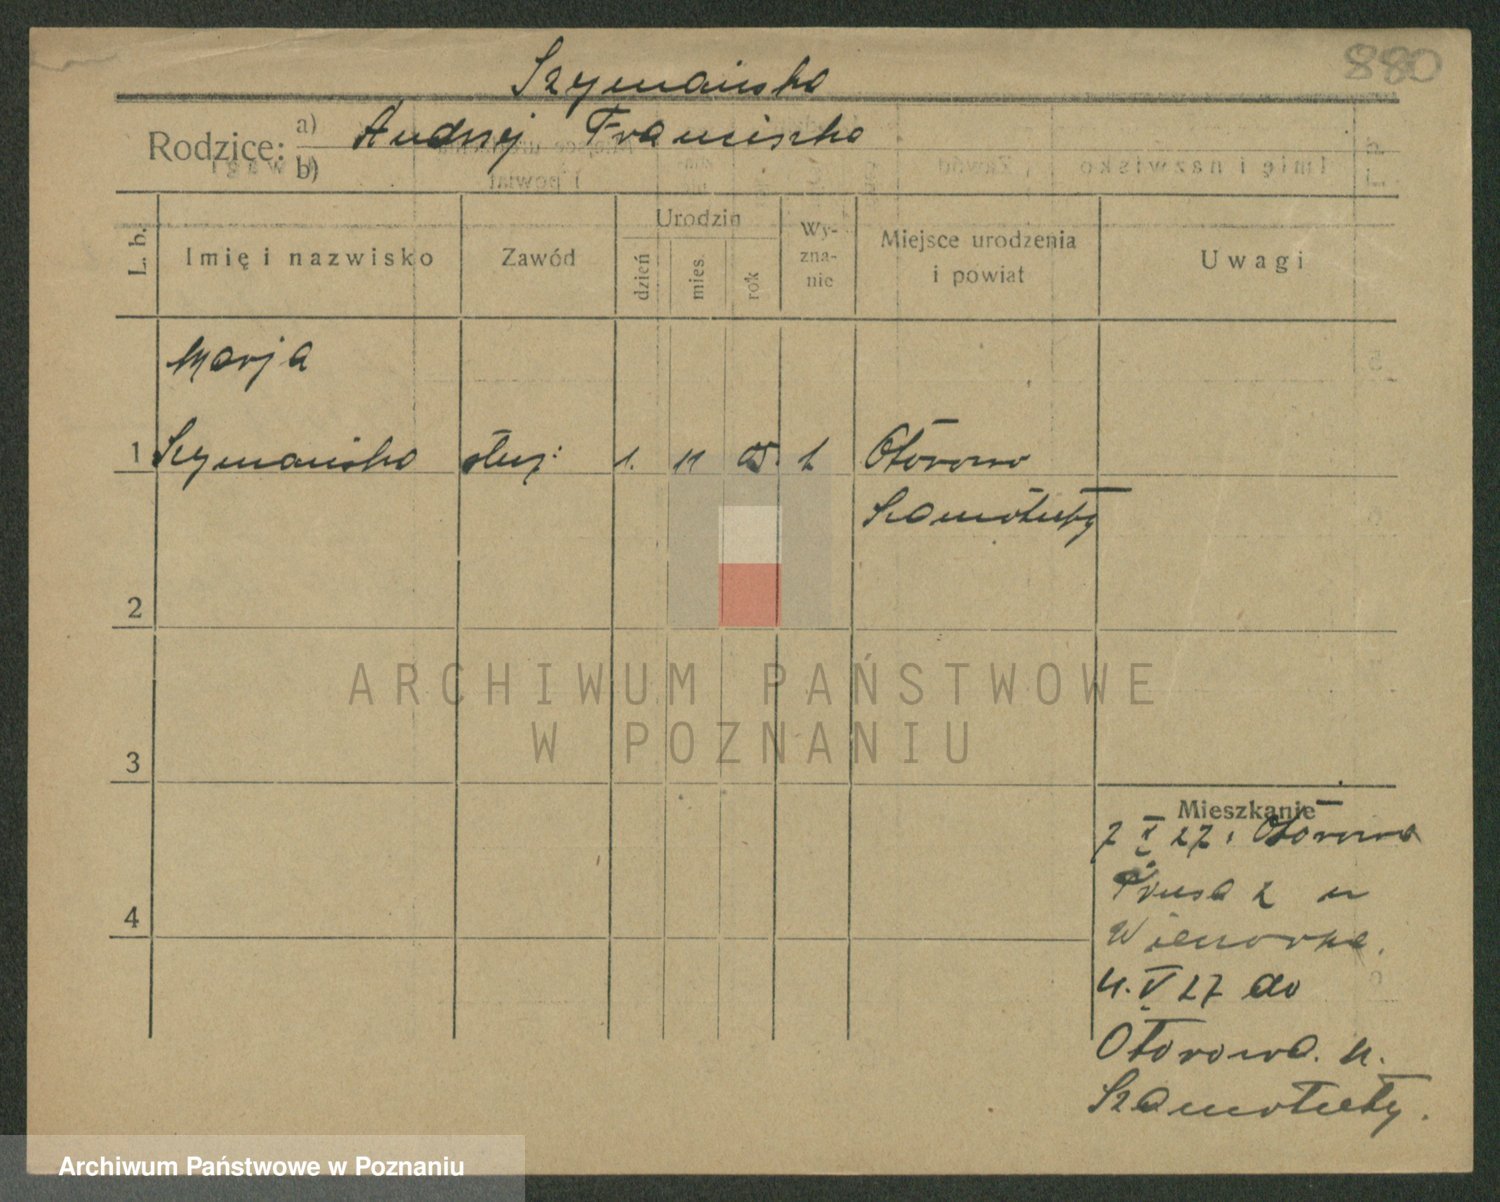 880
Szymańska
Rodzice: a) Andrzej Franciszka
b)
L. b. Imię i nazwisko Zawód Urodzin dzień mies. rok Wyznanie Miejsce urodzenia i powiat Uwagi
Marja
1 Szymańska służ: 1. 11 05. Otorowo
Szamotuły
2
3
4
Mieszkanie
7 27. Otorowa
Prusa 2 u
11. V 27 do
Otorowa. p.
Szamotuły.
ARCHIWUM PAŃSTWOWE
W POZNANIU
Archiwum Państwowe w Poznaniu